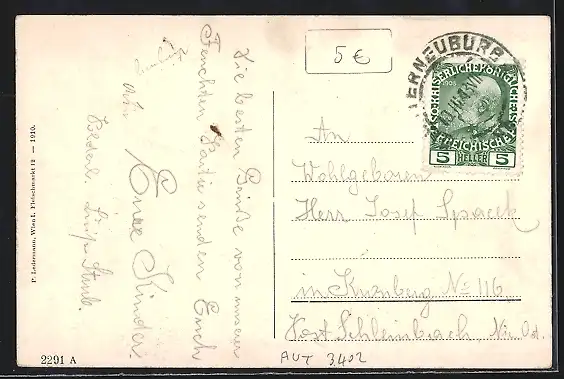 Die besten Grüße von unserer
Feuchten Partie senden Euch
Eure Kinder
5 €
KORNEUBURG
KAISERLICHE KÖNIGLICHE
ÖSTERREICHISCHE
5 HELLER 5
An
Wohlgeboren
Herr Josef Spacek
in Kurzberg No 116
Post Schleinbach Nie. Öst.
P. Ledermann, Wien I. Fleischmarkt 12 — 1910.
2291 A
AUT 3402